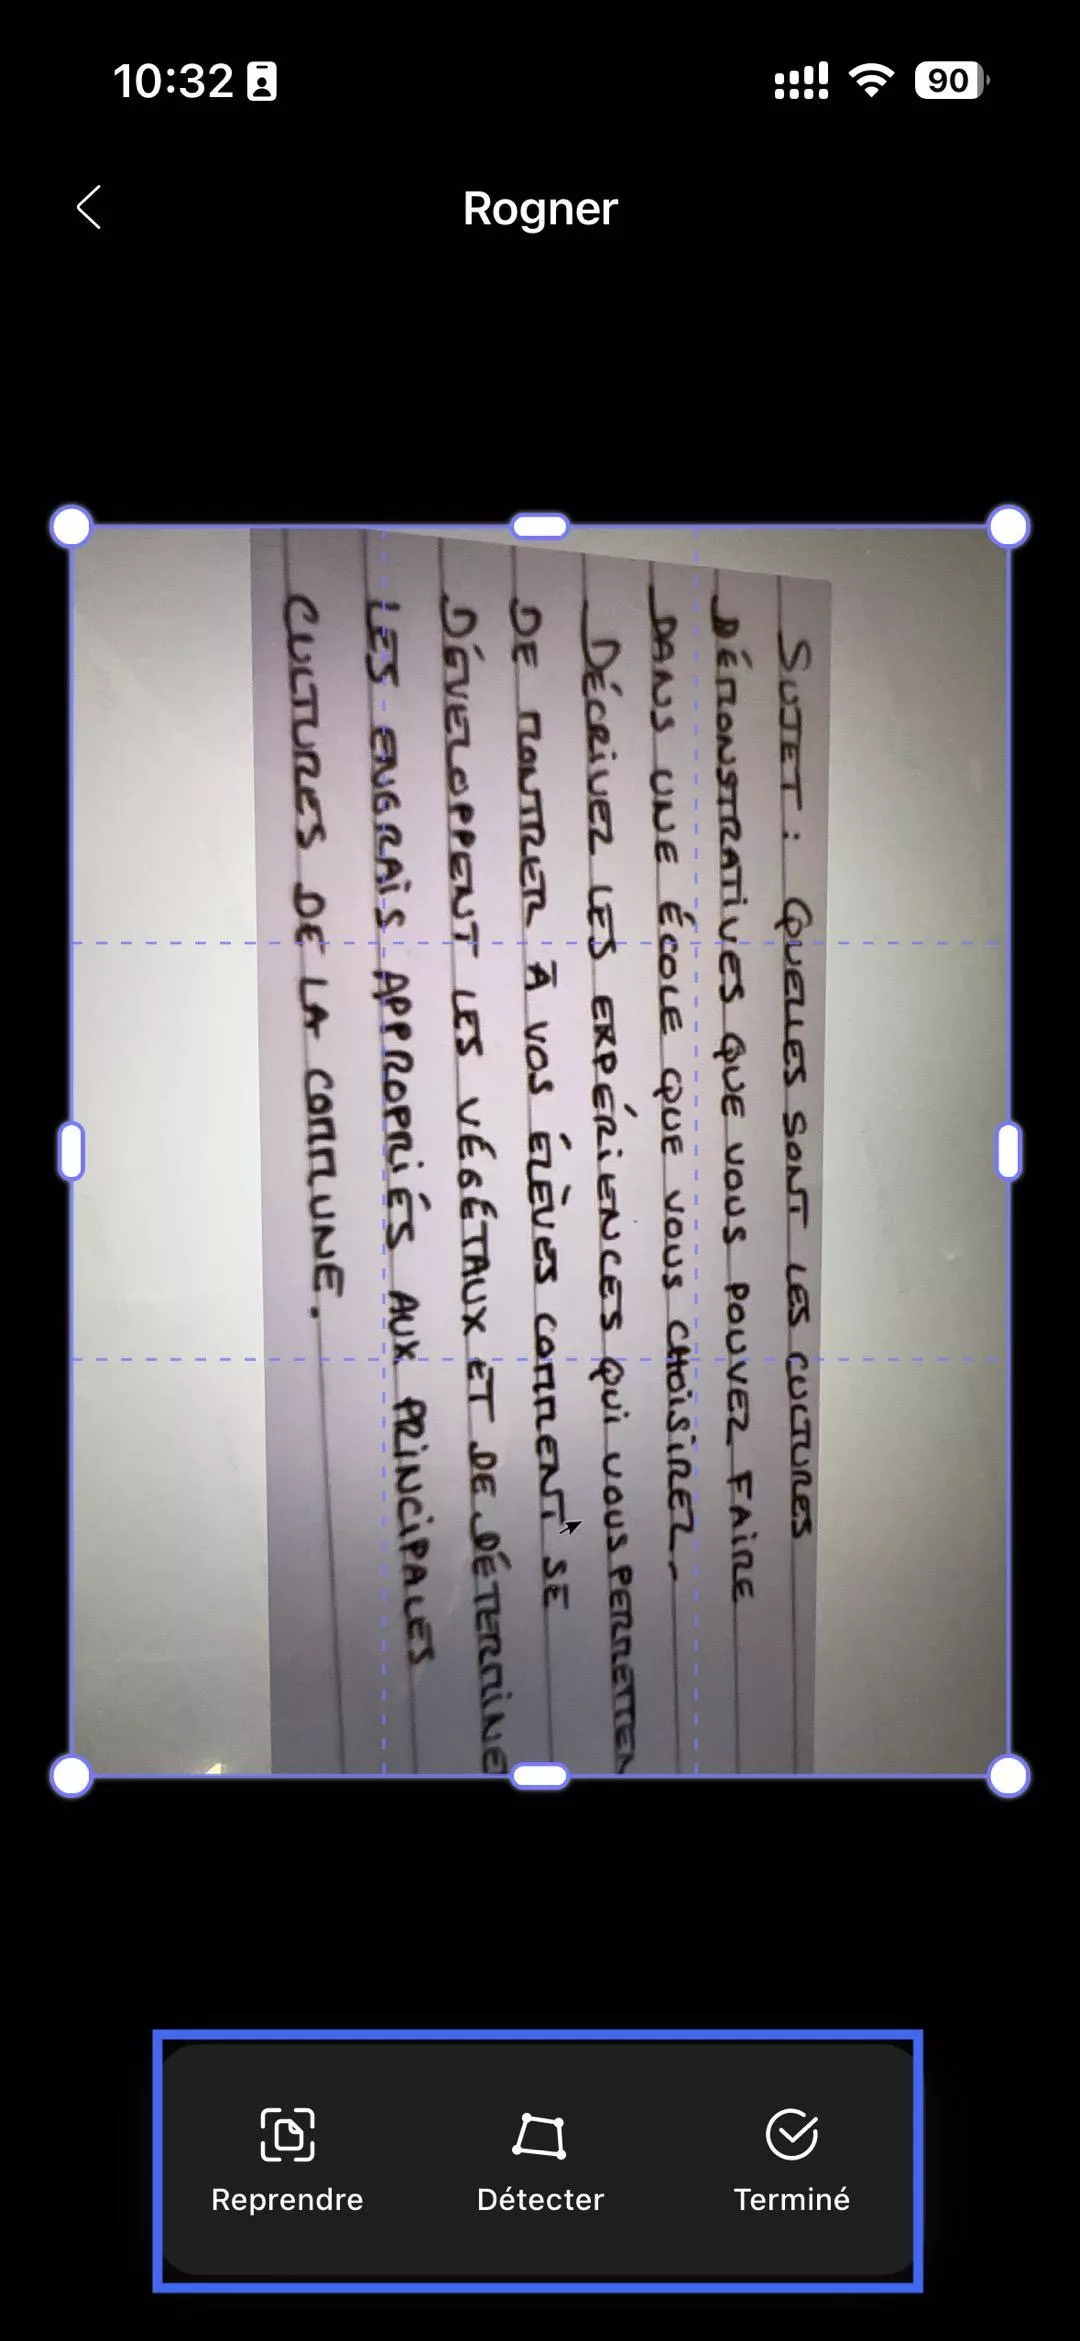 10:32
90
Rogner
SUJET : QUELLES SONT LES CULTURES
DÉMONSTRATIVES QUE VOUS POUVEZ FAIRE
DANS UNE ÉCOLE QUE VOUS CHOISIREZ.
DÉCRIVEZ LES EXPÉRIENCES QUI VOUS PERMETTEN
DE MONTRER À VOS ÉLÈVES COMMENT SE
DÉVELOPPENT LES VÉGÉTAUX ET DE DÉTERMINE
LES ENGRAIS APPROPRIÉS AUX PRINCIPALES
CULTURES DE LA COMMUNE.
Reprendre
Détecter
Terminé